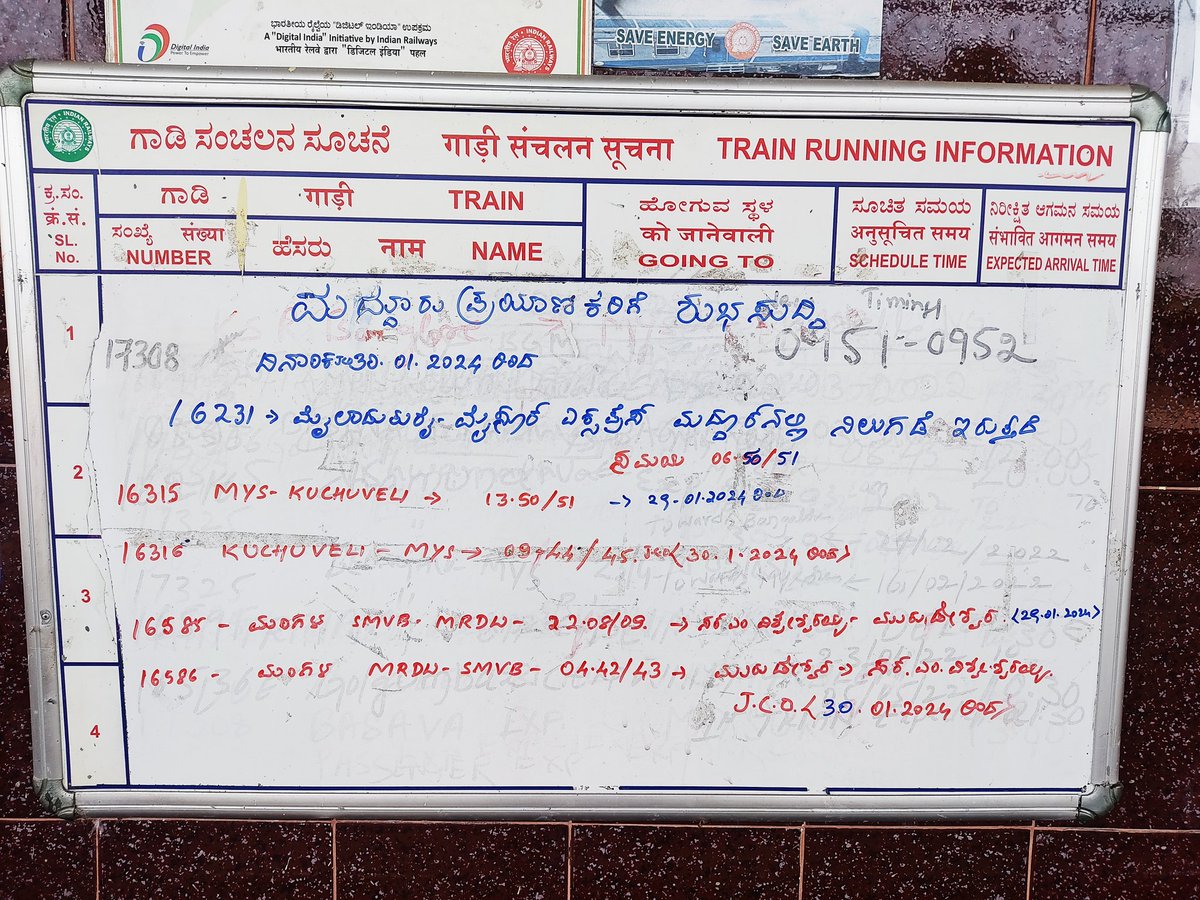 ಭಾರತೀಯ ರೈಲ್ವೆಯ "ಡಿಜಿಟಲ್ ಇಂಡಿಯಾ" ಉಪಕ್ರಮ
Digital India
Power To Empower
A "Digital India" Initiative by Indian Railways
भारतीय रेलवे द्वारा "डिजिटल इंडिया" पहल
SAVE ENERGY SAVE EARTH
ಗಾಡಿ ಸಂಚಲನ ಸೂಚನೆ गाड़ी संचलन सूचना TRAIN RUNNING INFORMATION
ಕ್ರ.ಸಂ. क्रं.सं. SL. No.
ಗಾಡಿ गाड़ी TRAIN
ಸಂಖ್ಯೆ संख्या NUMBER
ಹೆಸರು नाम NAME
ಹೋಗುವ ಸ್ಥಳ को जानेवाली GOING TO
ಸೂಚಿತ ಸಮಯ अनुसूचित समय SCHEDULE TIME
ನಿರೀಕ್ಷಿತ ಆಗಮನ ಸಮಯ संभावित आगमन समय EXPECTED ARRIVAL TIME
1
ಮದ್ದೂರು ಪ್ರಯಾಣಿಕರಿಗೆ ಶುಭಸುದ್ದಿ
Timing
17308 0951-0952
ದಿನಾಂಕ 30.01.2024 ರಿಂದ
16231 → ಮೈಲಾಡುತುರೈ- ಮೈಸೂರ್ ಎಕ್ಸಪ್ರೆಸ್ ಮದ್ದೂರ್‌ನಲ್ಲಿ ನಿಲುಗಡೆ ಇರುತ್ತದೆ
ಸಮಯ 06.50/51
2
16315 MYS- KUCHUVELI → 13.50/51 → 29-01-2024 ರಿಂದ
16316 KUCHUVELI - MYS → 09-44/45. JCO< 30.1.2024 ರಿಂದ>
3
16585 - ಮಂಗಳ SMVB- MRDW- 22.08/09. → ಸರ್.ಎಂ ವಿಶ್ವೇಶ್ವರಯ್ಯ- ಮುರುಡೇಶ್ವರ <29.01.2024>
16586 - ಮಂಗಳ MRDW- SMVB- 04.42/43 → ಮುರುಡೇಶ್ವರ → ಸರ್.ಎಂ. ವಿಶ್ವೇಶ್ವರಯ್ಯ.
J.C.O.< 30.01.2024 ರಿಂದ>
4